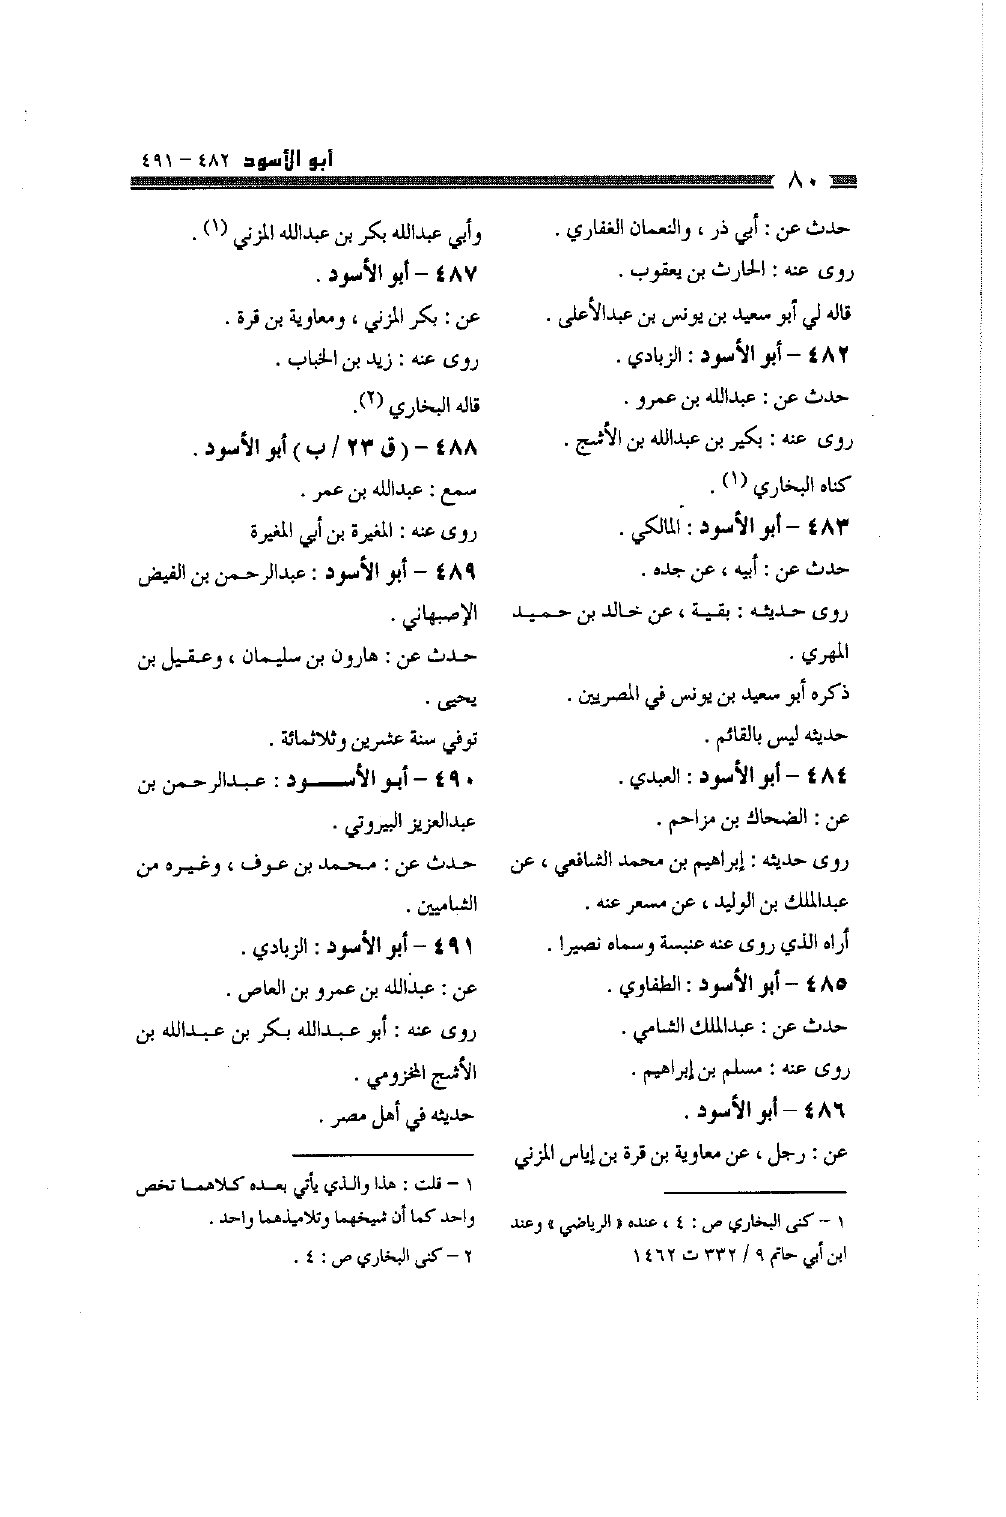 أبو الأسود ٤٨٢ – ٤٩١
٨٠
حدث عن : أبي ذر ، والنعمان الغفاري .
روى عنه : الحارث بن يعقوب .
قاله لي أبو سعيد بن يونس بن عبدالأعلى .
٤٨٢ – أبو الأسود : الزبادي .
حدث عن : عبدالله بن عمرو .
روى عنه : بكير بن عبدالله بن الأشج .
كناه البخاري (١) .
٤٨٣ – أبو الأسود : المالكي .
حدث عن : أبيه ، عن جده .
روى حديثه : بقية ، عن خالد بن حميد
المهري .
ذكره أبو سعيد بن يونس في المصريين .
حديثه ليس بالقائم .
٤٨٤ – أبو الأسود : العبدي .
عن : الضحاك بن مزاحم .
روى حديثه : إبراهيم بن محمد الشافعي ، عن
عبدالملك بن الوليد ، عن مسعر عنه .
أراه الذي روى عنه عنبسة وسماه نصيرا .
٤٨٥ – أبو الأسود : الطفاوي .
حدث عن : عبدالملك الشامي .
روى عنه : مسلم بن إبراهيم .
٤٨٦ – أبو الأسود .
عن : رجل ، عن معاوية بن قرة بن إياس المزني
١ – كنى البخاري ص : ٤ ، عنده « الرياضي » وعند
ابن أبي حاتم ٩ / ٣٣٢ ت ١٤٦٢
وأبي عبدالله بكر بن عبدالله المزني (١) .
٤٨٧ – أبو الأسود .
عن : بكر المزني ، ومعاوية بن قرة .
روى عنه : زيد بن الحباب .
قاله البخاري (٢).
٤٨٨ – ( ق ٢٣ / ب ) أبو الأسود .
سمع : عبدالله بن عمر .
روى عنه : المغيرة بن أبي المغيرة
٤٨٩ – أبو الأسود : عبدالرحمن بن الفيض
الإصبهاني .
حدث عن : هارون بن سليمان ، وعقيل بن
يحيى .
توفي سنة عشرين وثلاثمائة .
٤٩٠ – أبو الأســـود : عبدالرحمن بن
عبدالعزيز البيروتي .
حدث عن : محمد بن عوف ، وغيره من
الشاميين .
٤٩١ – أبو الأسود : الزبادي .
عن : عبدالله بن عمرو بن العاص .
روى عنه : أبو عبدالله بكر بن عبدالله بن
الأشج المخزومي .
حديثه في أهل مصر .
١ – قلت : هذا والذي يأتي بعده كلاهما تخص
واحد كما أن شيخهما وتلاميذهما واحد .
٢ – كنى البخاري ص : ٤ .